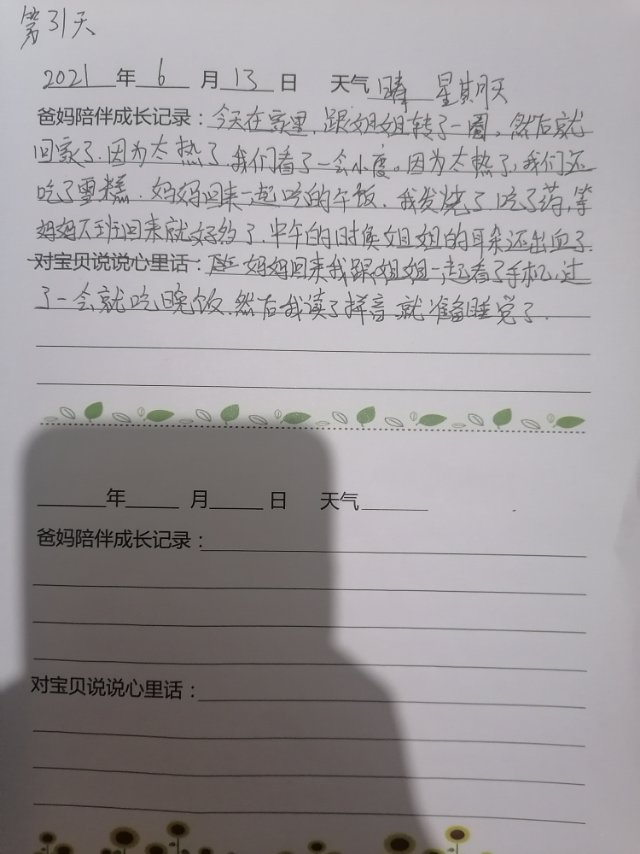 第31天
2021年6月13日 天气晴 星期天
爸妈陪伴成长记录：今天在家里，跟姐姐转了一圈，然后就
回家了.因为太热了.我们看了一会小度。因为太热了，我们还
吃了雪糕.妈妈回来一起吃的午饭.我发烧了吃了药，等
妈妈下班回来就好多了.中午的时候姐姐的耳朵还出血了.
对宝贝说说心里话：妈妈回来我跟姐姐一起看了手机，过
了一会就吃晚饭.然后我读了拼音就准备睡觉了.
年 月 日 天气
爸妈陪伴成长记录：
对宝贝说说心里话：